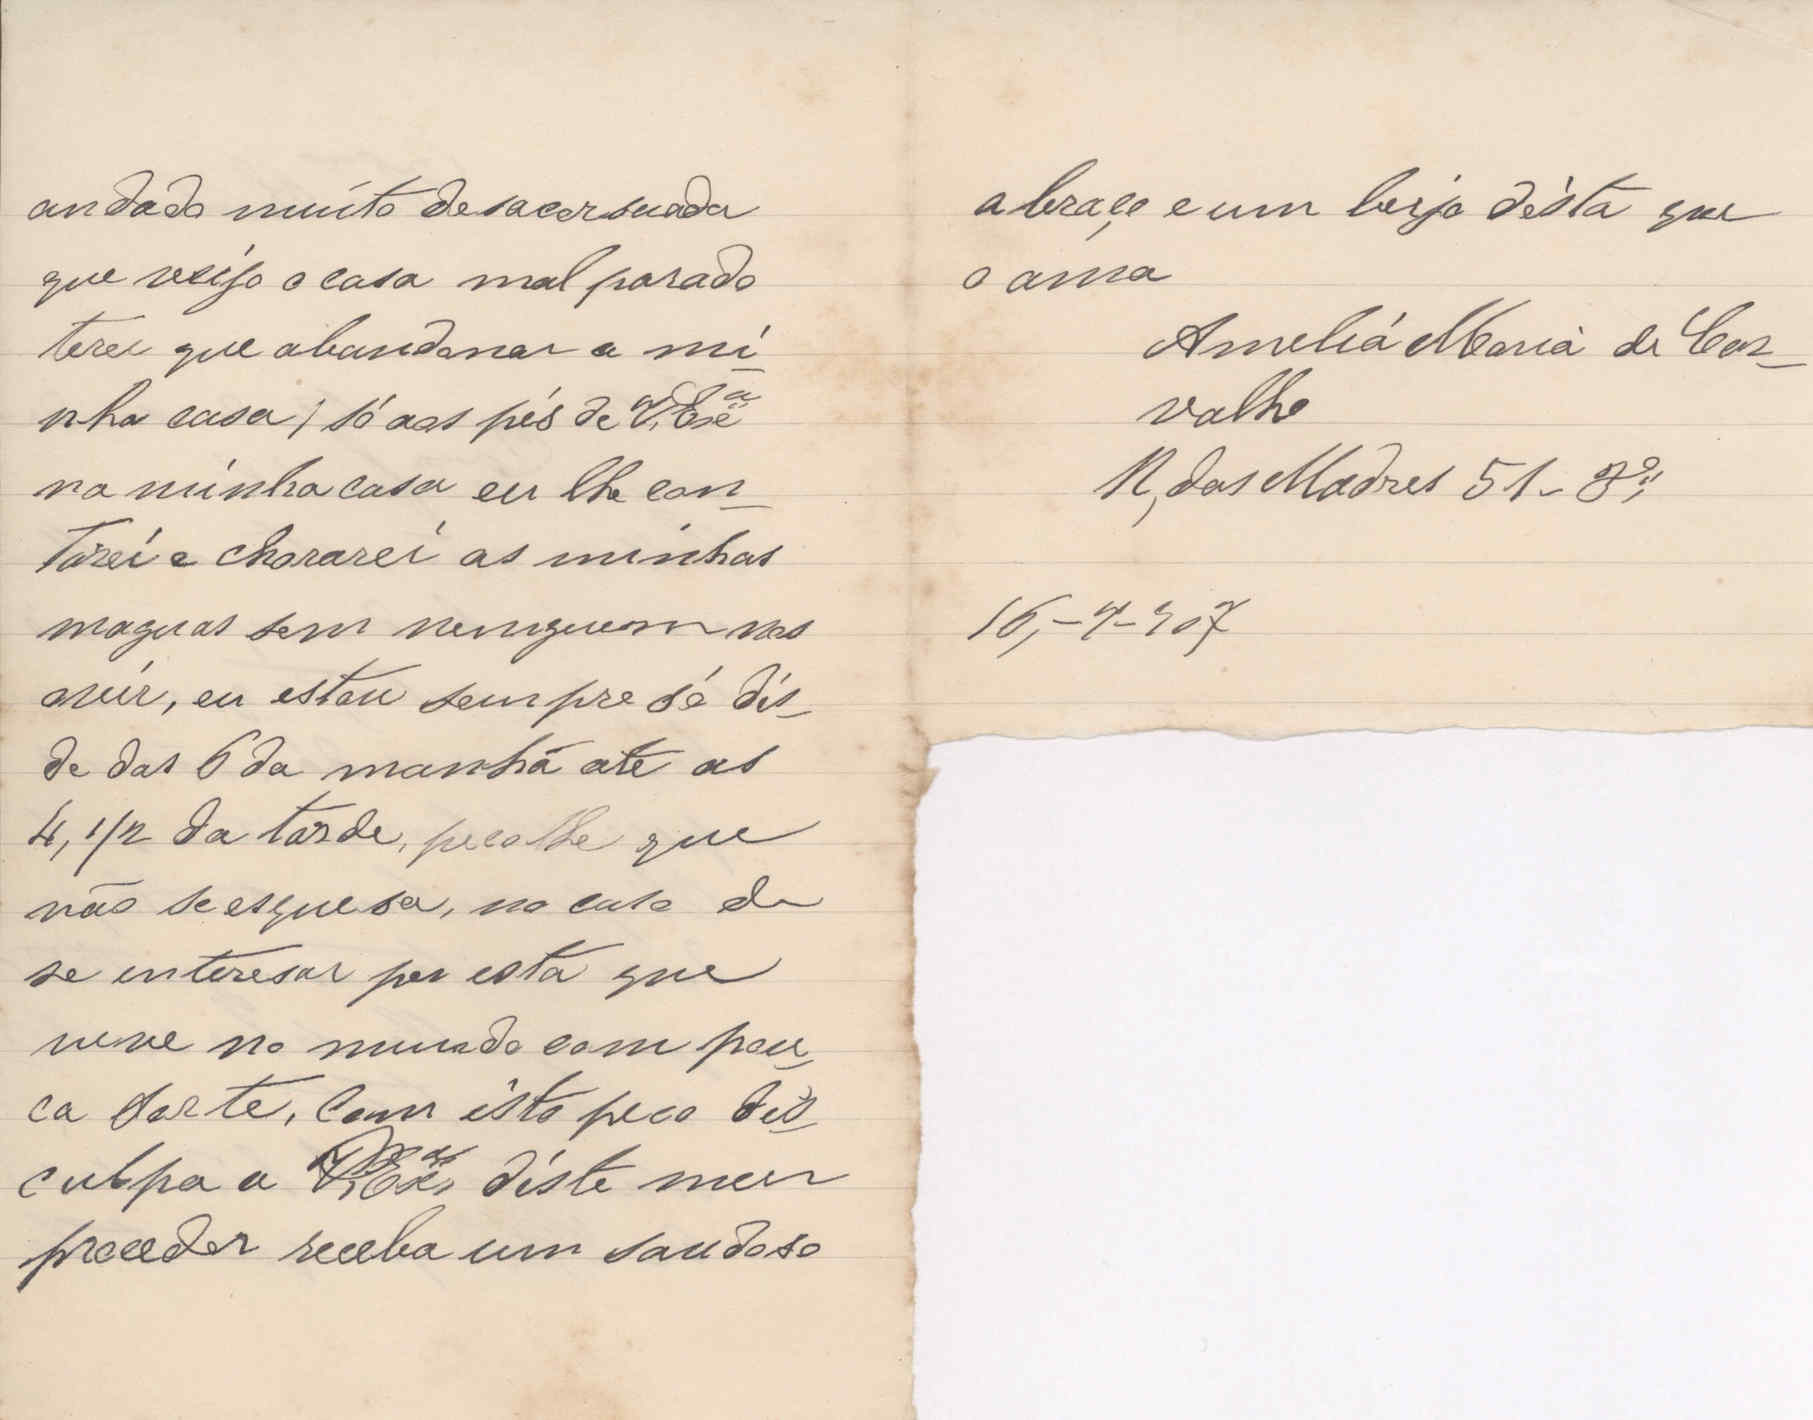 andado muito desacorsuada
que veijo o caso mal parado
terei que abandonar a mi-
nha casa; só aos pés de V. Exª
na minha casa eu lhe con-
tarei e chorarei as minhas
maguas sem nenguem nos
ovir, eu estou sempre só dis-
de das 6 da manhã até as
4, 1/2 da tarde, peco lhe que
não se esquesa, no caso de
se interesar por esta que
veve no mundo com pou-
ca sorte, Com isto peco dis-
culpa a V. Exª, diste meu
proceder receba um saudoso
abraço e um beijo désta que
o ama
Ameliá Maria de Car-
valho
R, das Madres 51- 3º
16,-7-907